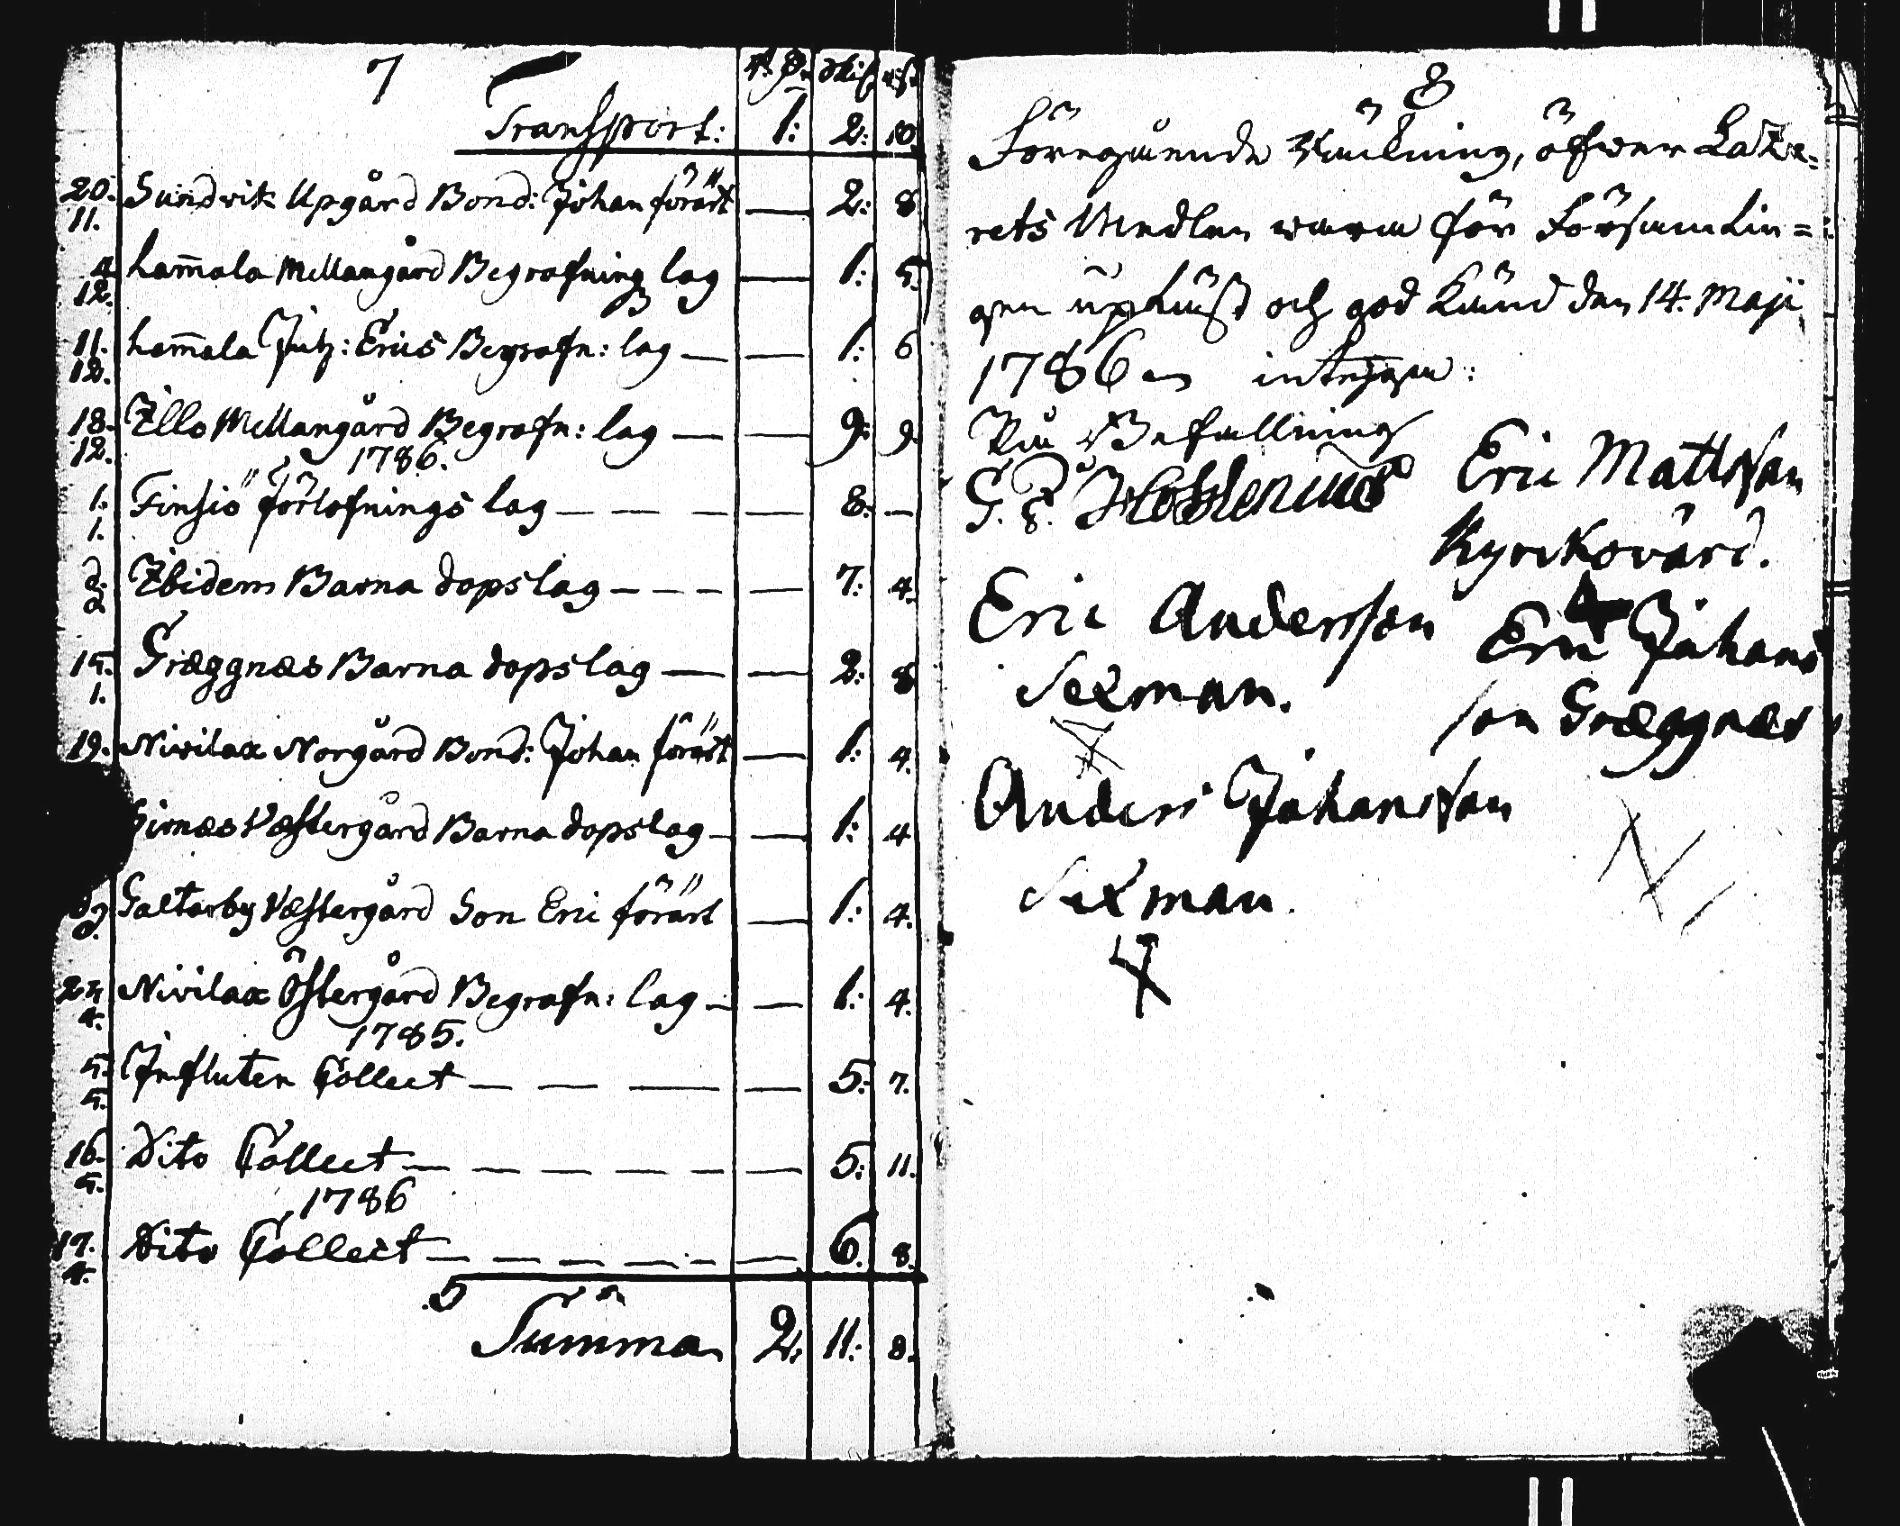 7
Rd. skil. rst.
Transport: 1: 2: 10.
20. 11. Sundvik Upgård Bond: Johan förärt — 2: 8
4. 12. Lam̄ala Mellangård Begrafning lag — 1: 5.
11. 12. Lam̄ala Eriks Begrafn: lag — — 1: 6
18. 12. Illo Mellangård Begrafn: lag — — 9: 9.
1786.
1. 1. Finsiö förlofnings lag — — — — 8: —
d. d Ibidem Barna dopslag — — — — 7: 4.
15. 1. Græggnæs Barna dopslag — — 2: 8
19. Nivilax Norgård Bond: Johan förärt — 1: 4.
Væstergård Barna dopslag — — 1: 4
Galtarby Væstergård Son Eric förärt — 1: 4.
24 4. Nivilax Östergård Begrafn: lag — — 1: 4.
1785.
5. 5. Influten Collect — — — — 5: 7.
16. 5. Dito Collect — — — — — — 5: 11.
1786
17. 4. Dito Collect — — — — — — 6. 8.
Summa 2. 11: 8.
8
Föregående Räkning, öfwer Laza=
rets Medlen wara för Församlin=
gen upläst och god känd den 14. Maji
1786
På Befallning
Eric Mattsson
Kyrckovärd.
Eric Andersson
Sexman.
Eric Johans
son Græggnæs
Anders Johansson
Sexman.